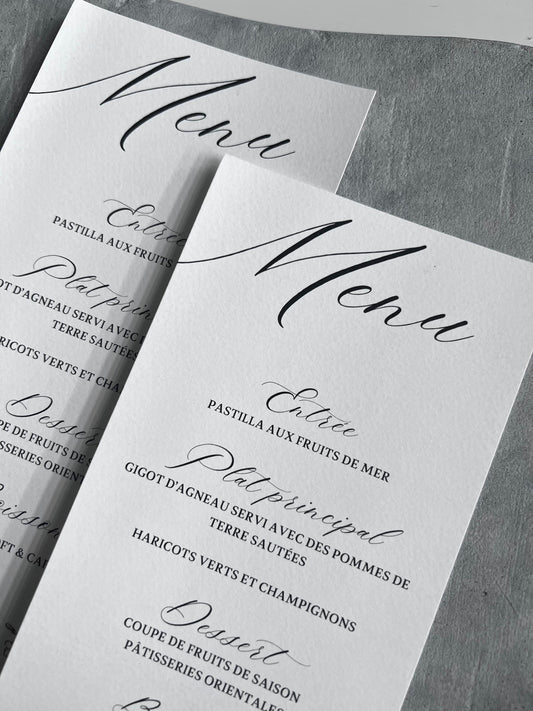 Menu
Entrée
PASTILLA AUX FRUITS
Plat principal
GIGOT D'AGNEAU SERVI AVEC
TERRE SAUTÉES
HARICOTS VERTS ET CHAM
Dessert
COUPE DE FRUITS DE
PÂTISSERIES ORIENTAL
SOFT &
Menu
Entrée
PASTILLA AUX FRUITS DE MER
Plat principal
GIGOT D'AGNEAU SERVI AVEC DES POMMES DE
TERRE SAUTÉES
HARICOTS VERTS ET CHAMPIGNONS
Dessert
COUPE DE FRUITS DE SAISON
PÂTISSERIES ORIENTALES